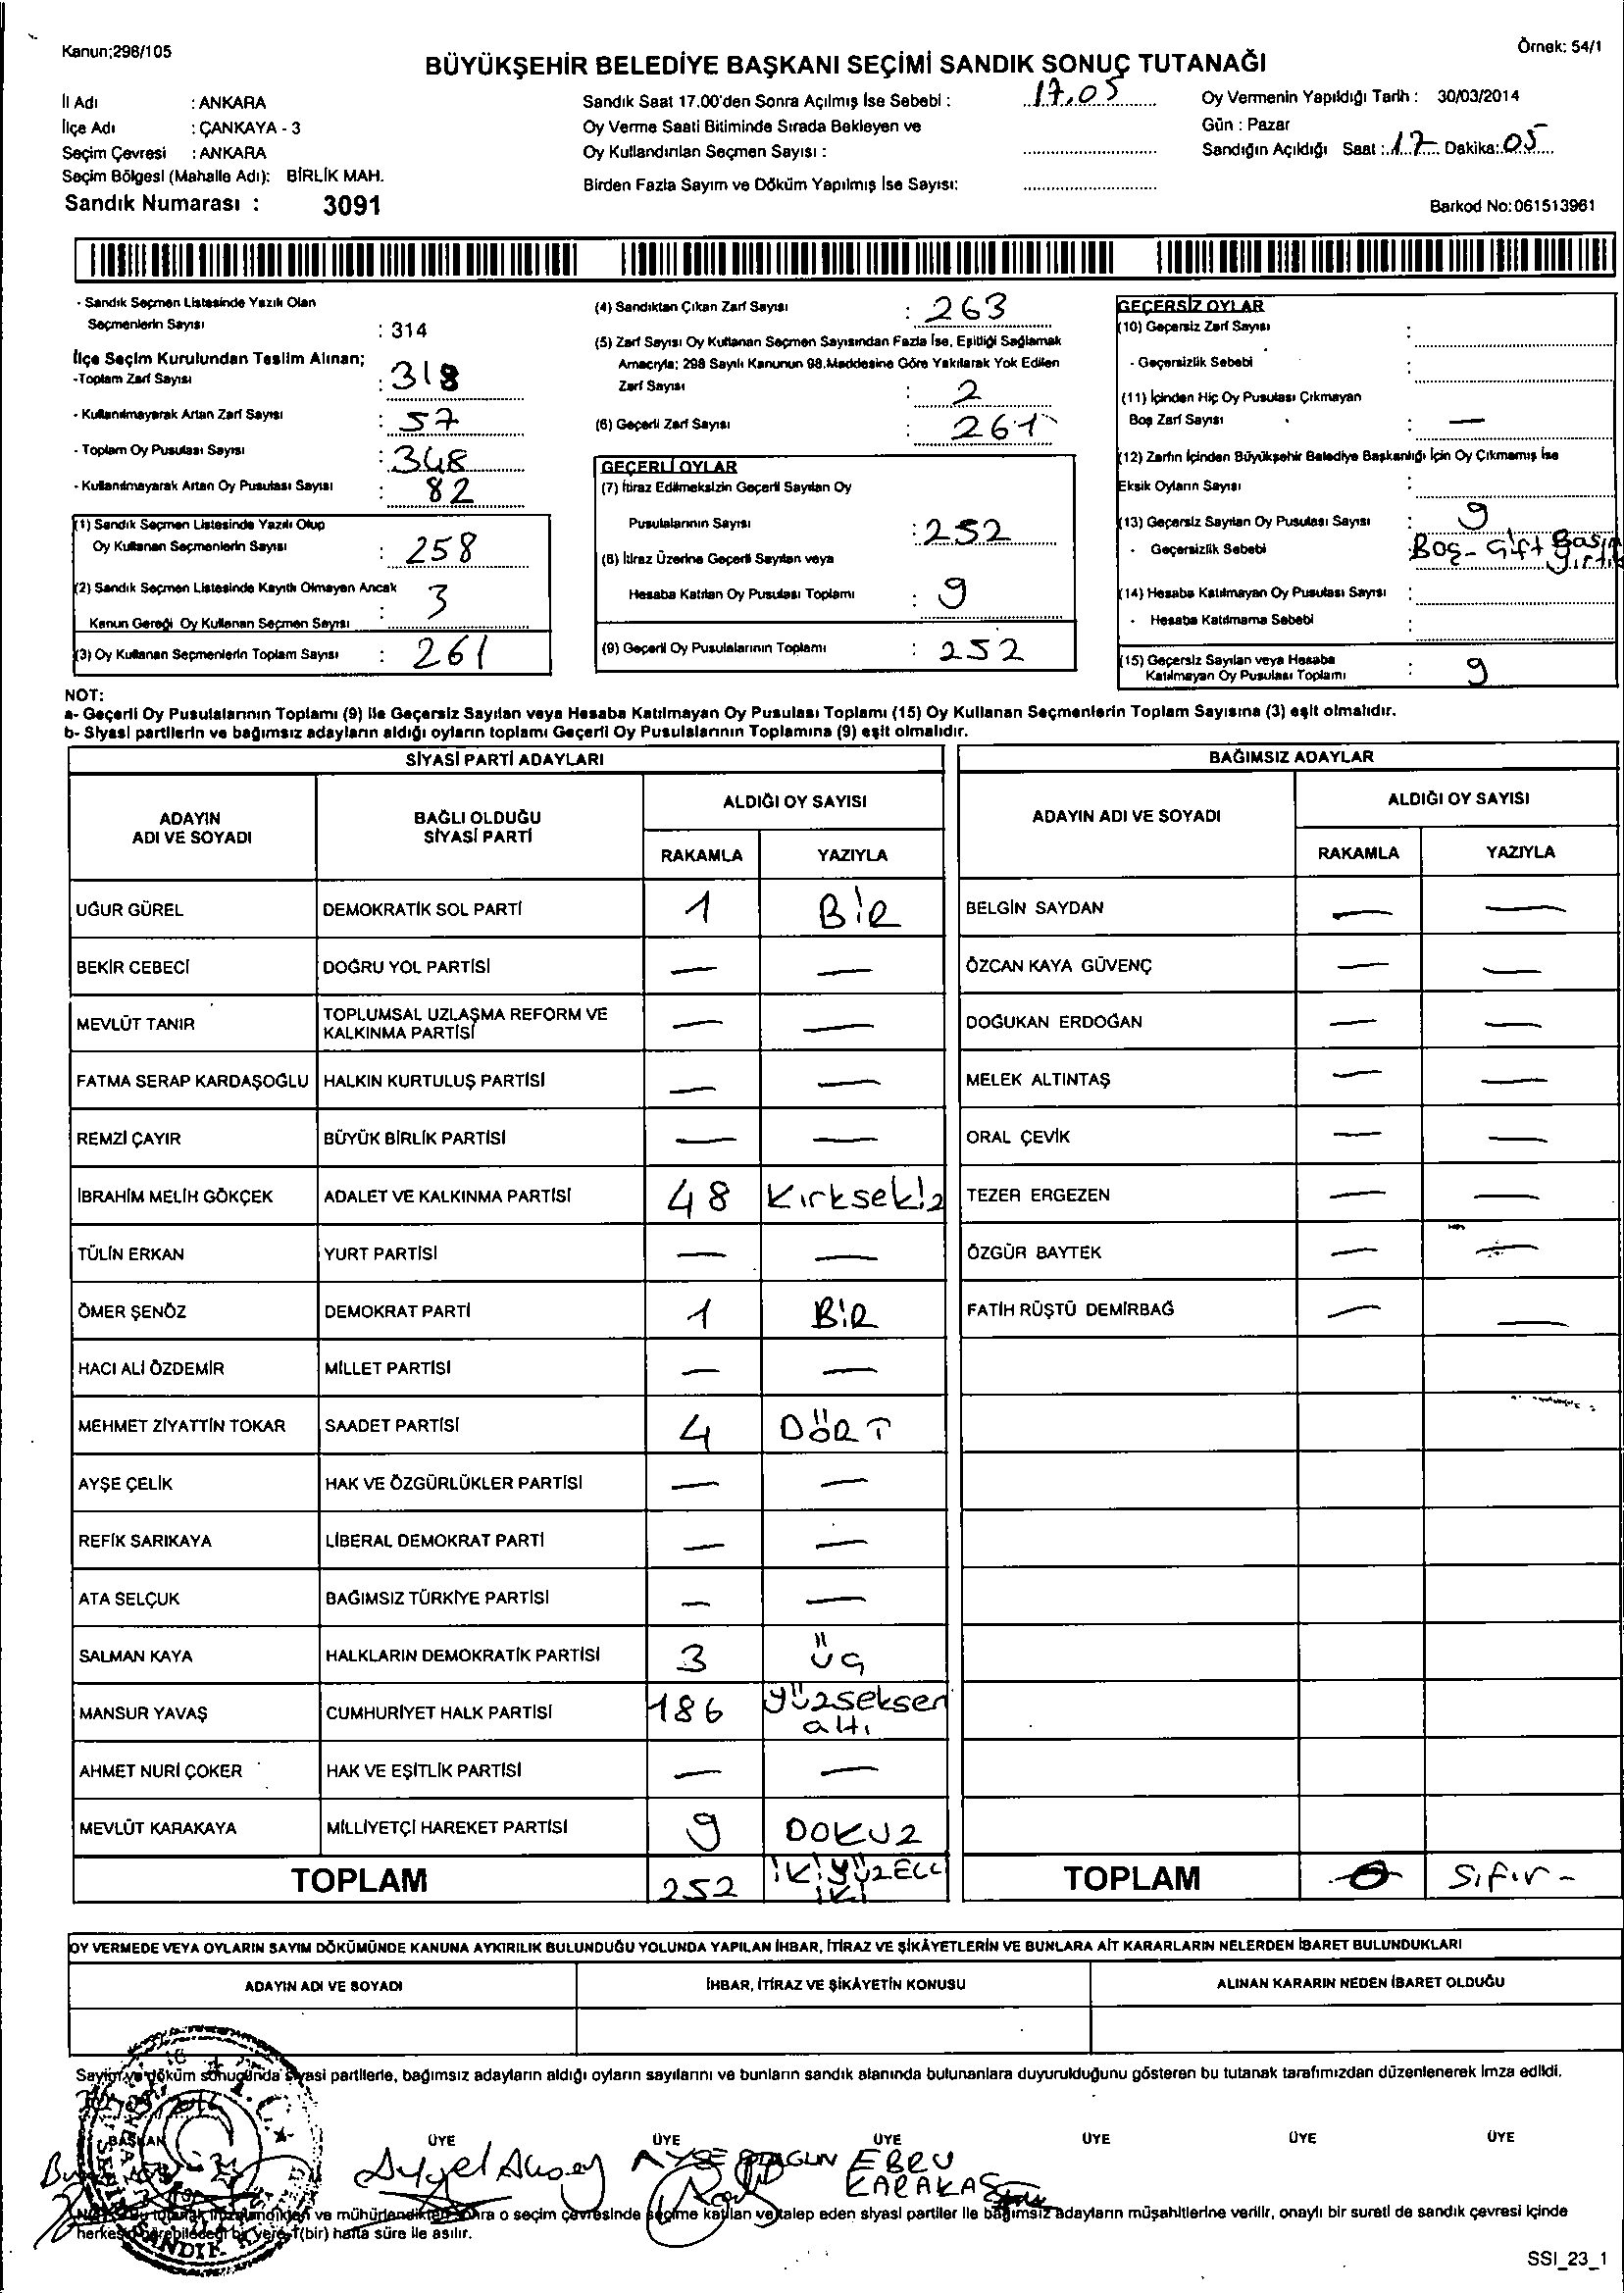 Kanun;298/105
Örnek: 54/1
BÜYÜKŞEHİR BELEDİYE BAŞKANI SEÇİMİ SANDIK SONUÇ TUTANAĞI
İl Adı : ANKARA
İlçe Adı : ÇANKAYA - 3
Seçim Çevresi : ANKARA
Seçim Bölgesi (Mahalle Adı): BİRLİK MAH.
Sandık Numarası : 3091
Sandık Saat 17.00'den Sonra Açılmış İse Sebebi : 17.05
Oy Verme Saati Bitiminde Sırada Bekleyen ve
Oy Kullandırılan Seçmen Sayısı :
Birden Fazla Sayım ve Döküm Yapılmış İse Sayısı:
Oy Vermenin Yapıldığı Tarih : 30/03/2014
Gün : Pazar
Sandığın Açıldığı Saat : 17 Dakika: 05
Barkod No:061513961
- Sandık Seçmen Listesinde Yazılı Olan
Seçmenlerin Sayısı : 314
İlçe Seçim Kurulundan Teslim Alınan;
-Toplam Zarf Sayısı : 318
- Kullanılmayarak Artan Zarf Sayısı : 57
- Toplam Oy Pusulası Sayısı : 348
- Kullanılmayarak Artan Oy Pusulası Sayısı : 82
(1) Sandık Seçmen Listesinde Yazılı Olup
Oy Kullanan Seçmenlerin Sayısı : 258
(2) Sandık Seçmen Listesinde Kayıtlı Olmayan Ancak
Kanun Gereği Oy Kullanan Seçmen Sayısı : 3
(3) Oy Kullanan Seçmenlerin Toplam Sayısı : 261
(4) Sandıktan Çıkan Zarf Sayısı : 263
(5) Zarf Sayısı Oy Kullanan Seçmen Sayısından Fazla İse, Eşitliği Sağlamak
Amacıyla; 298 Sayılı Kanunun 98.Maddesine Göre Yakılarak Yok Edilen
Zarf Sayısı : 2
(6) Geçerli Zarf Sayısı : 261
GEÇERLİ OYLAR
(7) İtiraz Edilmeksizin Geçerli Sayılan Oy
Pusulalarının Sayısı : 252
(8) İtiraz Üzerine Geçerli Sayılan veya
Hesaba Katılan Oy Pusulası Toplamı : 9
(9) Geçerli Oy Pusulalarının Toplamı : 252
GEÇERSİZ OYLAR
(10) Geçersiz Zarf Sayısı :
- Geçersizlik Sebebi :
(11) İçinden Hiç Oy Pusulası Çıkmayan
Boş Zarf Sayısı : —
(12) Zarfın İçinden Büyükşehir Belediye Başkanlığı İçin Oy Çıkmamış İse
Eksik Oyların Sayısı :
(13) Geçersiz Sayılan Oy Pusulası Sayısı : 9
- Geçersizlik Sebebi : Boş - Çift
(14) Hesaba Katılmayan Oy Pusulası Sayısı :
- Hesaba Katılmama Sebebi :
(15) Geçersiz Sayılan veya Hesaba
Katılmayan Oy Pusulası Toplamı : 9
NOT:
a- Geçerli Oy Pusulalarının Toplamı (9) ile Geçersiz Sayılan veya Hesaba Katılmayan Oy Pusulası Toplamı (15) Oy Kullanan Seçmenlerin Toplam Sayısına (3) eşit olmalıdır.
b- Siyasi partilerin ve bağımsız adayların aldığı oyların toplamı Geçerli Oy Pusulalarının Toplamına (9) eşit olmalıdır.
SİYASİ PARTİ ADAYLARI
ADAYIN
ADI VE SOYADI
BAĞLI OLDUĞU
SİYASİ PARTİ
ALDIĞI OY SAYISI
RAKAMLA YAZIYLA
UĞUR GÜREL DEMOKRATİK SOL PARTİ 1 BİR
BEKİR CEBECİ DOĞRU YOL PARTİSİ — —
MEVLÜT TANIR TOPLUMSAL UZLAŞMA REFORM VE
KALKINMA PARTİSİ — —
FATMA SERAP KARDAŞOĞLU HALKIN KURTULUŞ PARTİSİ — —
REMZİ ÇAYIR BÜYÜK BİRLİK PARTİSİ — —
İBRAHİM MELİH GÖKÇEK ADALET VE KALKINMA PARTİSİ 48 Kırksekiz
TÜLİN ERKAN YURT PARTİSİ — —
ÖMER ŞENÖZ DEMOKRAT PARTİ 1 BİR
HACI ALİ ÖZDEMİR MİLLET PARTİSİ — —
MEHMET ZİYATTİN TOKAR SAADET PARTİSİ 4 DÖRT
AYŞE ÇELİK HAK VE ÖZGÜRLÜKLER PARTİSİ — —
REFİK SARIKAYA LİBERAL DEMOKRAT PARTİ — —
ATA SELÇUK BAĞIMSIZ TÜRKİYE PARTİSİ — —
SALMAN KAYA HALKLARIN DEMOKRATİK PARTİSİ 3 ÜÇ
MANSUR YAVAŞ CUMHURİYET HALK PARTİSİ 186 yüzseksen
altı
AHMET NURİ ÇOKER HAK VE EŞİTLİK PARTİSİ — —
MEVLÜT KARAKAYA MİLLİYETÇİ HAREKET PARTİSİ 9 DOKUZ
TOPLAM 252 İKİYÜZELLİ
İKİ
BAĞIMSIZ ADAYLAR
ADAYIN ADI VE SOYADI
ALDIĞI OY SAYISI
RAKAMLA YAZIYLA
BELGİN SAYDAN — —
ÖZCAN KAYA GÜVENÇ — —
DOĞUKAN ERDOĞAN — —
MELEK ALTINTAŞ — —
ORAL ÇEVİK — —
TEZER ERGEZEN — —
ÖZGÜR BAYTEK — —
FATİH RÜŞTÜ DEMİRBAĞ — —
TOPLAM 0 Sıfır -
OY VERMEDE VEYA OYLARIN SAYIM DÖKÜMÜNDE KANUNA AYKIRILIK BULUNDUĞU YOLUNDA YAPILAN İHBAR, İTİRAZ VE ŞİKÂYETLERİN VE BUNLARA AİT KARARLARIN NELERDEN İBARET BULUNDUKLARI
ADAYIN ADI VE SOYADI İHBAR, İTİRAZ VE ŞİKÂYETİN KONUSU ALINAN KARARIN NEDEN İBARET OLDUĞU
Sayım ve döküm sonucunda siyasi partilerle, bağımsız adayların aldığı oyların sayılarını ve bunların sandık alanında bulunanlara duyurulduğunu gösteren bu tutanak tarafımızdan düzenlenerek imza edildi.
BAŞKAN ÜYE ÜYE ÜYE ÜYE ÜYE ÜYE
Aysel Aksoy AYŞE EBRU
KARAKAŞ
ve mühürlendikten sonra o seçim çevresinde seçime katılan ve talep eden siyasi partiler ile bağımsız adayların müşahitlerine verilir, onaylı bir sureti de sandık çevresi içinde
herkesin görebileceği bir yere 1(bir) hafta süre ile asılır.
SSI_23_1